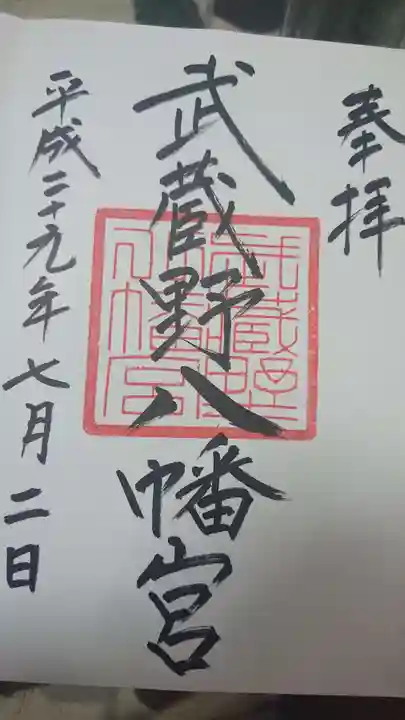 奉拝
武蔵野八幡宮
平成二十九年七月二日
武蔵野八幡宮